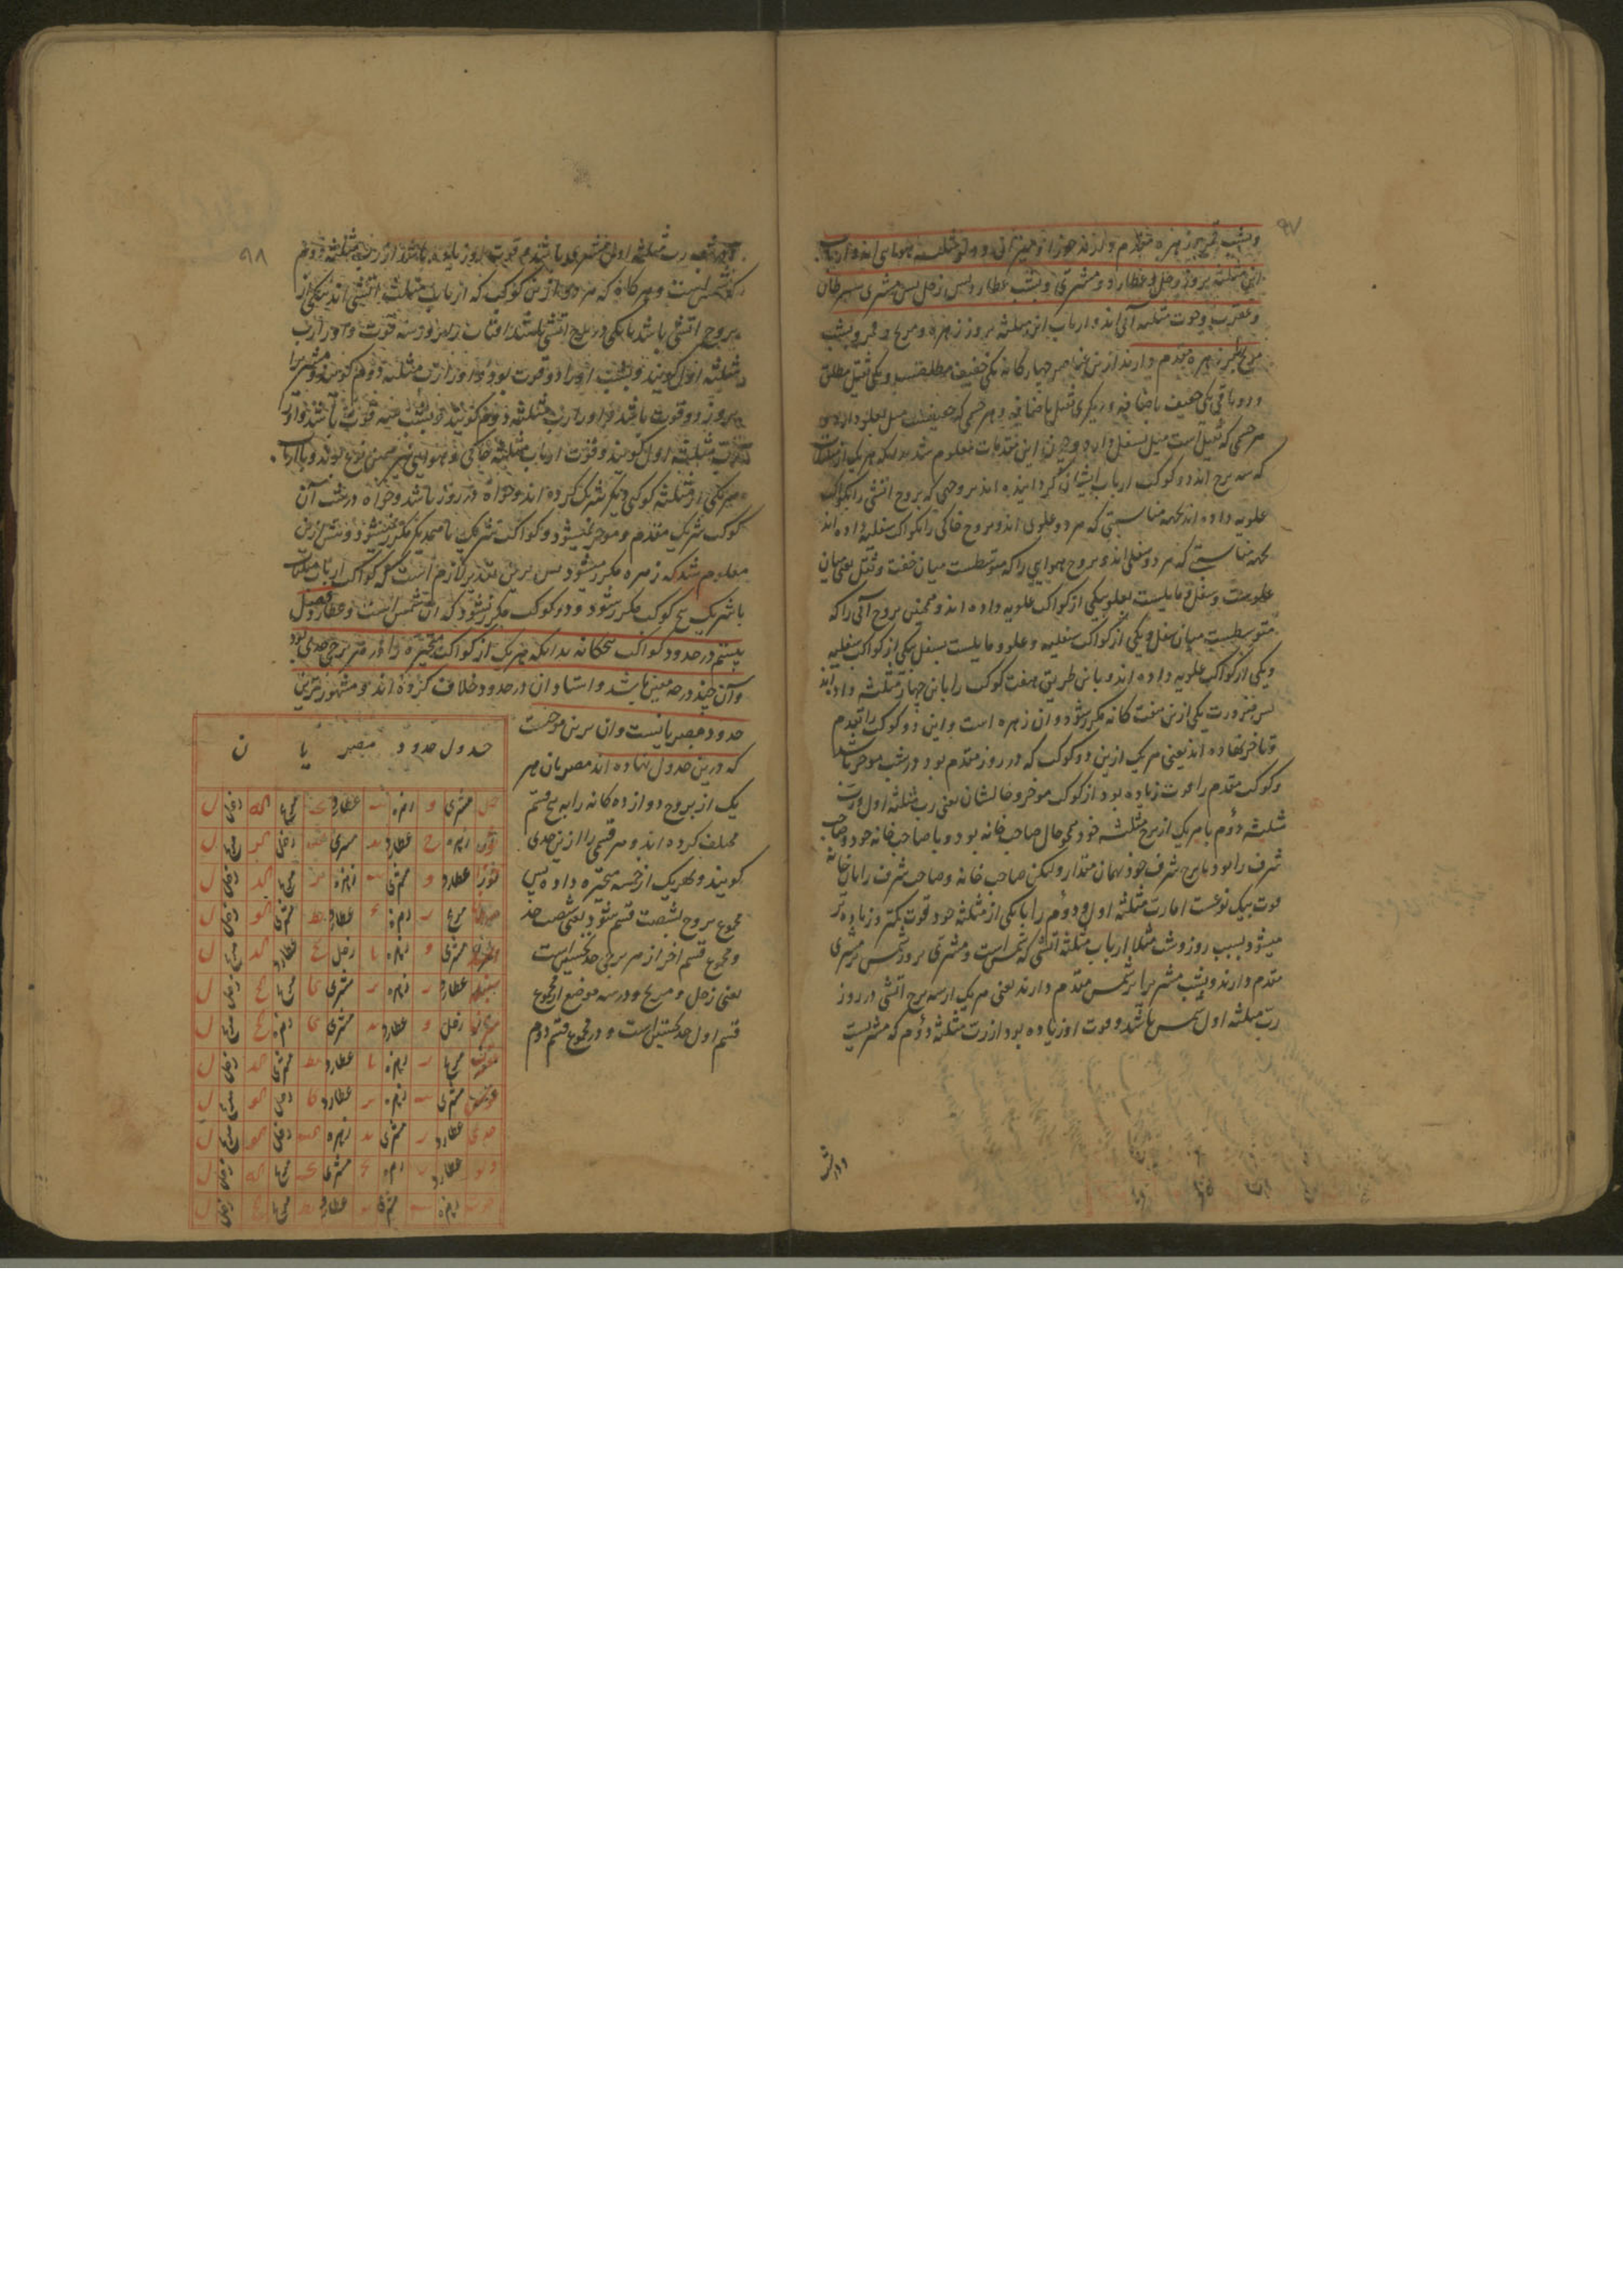 ۹۷
وبشب قمر بر زهره مقدم دارند جوزا و میزان و دلو مثلثه هوایی اند و ارباب
این مثلثه بروز زحل و عطارد و مشتری و بشب عطارد پس زحل پس مشتری سرطان
و عقرب و حوت مثلثه آبی اند و ارباب این مثلثه بروز زهره و مریخ و قمر و بشب
مریخ بر زهره مقدم دارند ازین عناصر چهار کانه یکی خفیف مطلقست و یکی ثقیل مطلق
و دو باقی یکی خفیف باضافه و دیکری ثقیل باضافه و هر جسمی که خفیفست میل بعلو دارد و
هر جسمی که ثقیل است میل بسفل دارد و چون این مقدمات معلوم شد بدانکه هر یک از مثلثات
که سه برج اند دو کوکب ارباب ایشان کردانیده اند بروجی که بروج آتشی را بکواکب
علویه داده اند بجهه مناسبتی که هر دو علوی اند و بروج خاکی را بکواکب سفلیه داده اند
بجهه مناسبتی که هر دو سفلی اند و بروج هوایی را که متوسطست میان خفت و ثقل یعنی میان
علو و سفل و مایلست بعلو یکی از کواکب علویه داده اند و همچنین بروج آبی را که
متوسطست میان سفل و یکی از کواکب سفلیه و علو و مایلست بسفل یکی از کواکب سفلیه
و یکی از کواکب علویه داده اند و باین طریق هفت کوکب را باین چهار مثلثه داده اند
پس ضرورت یکی ازین هفت کانه مکرر شود و آن زهره است و این دو کوکب را تقدم
و تاخر نهاده اند یعنی هر یک ازین دو کوکب که در روز مقدم بود در شب موخر باشد
و کوکب مقدم را قوت زیاده بود از کوکب موخر و حالشان یعنی رب مثلثه اول و رب
مثلثه دوم با هر یک از برج مثلثه خود همچو حال صاحب خانه بود و با صاحب خانه خود و صاحب
شرف را بود با برج شرف خود بهمان مقدار ولیکن صاحب خانه و صاحب شرف را با آن خانه
قوت بیک نوعست اما رب مثلثه اول و دوم را با یکی از مثلثه خود قوت کمتر و زیاده تر
میشود بسبب روز و شب مثلا ارباب مثلثه آتشی که شمس است و مشتری بروز شمس بر مشتری
مقدم دارند و بشب مشتری را بر شمس مقدم دارند یعنی هر یک از سه برج آتشی در روز
رب مثلثه اول شمس باشد و قوت او زیاده بود از رب مثلثه دوم که مشتریست
و در شب
۹۸
و در شب رب مثلثه اول مشتری باشد و قوت او زیاده باشد از رب مثلثه دوم
که شمس است و هر کاه که هر دو ازین کوکب که ارباب مثلثه آتشی اند یکی از
بروج آتشی باشد یا یکی در برج آتشی باشد آفتاب را بروز سه قوت و او را رب
مثلثه اول کویند و بشب او را دو قوت بود و او را رب مثلثه دوم کویند و مشتری را
بروز دو قوت باشد و او را رب مثلثه دوم کویند و بشب سه قوت باشد و او را
رب مثلثه اول کویند و قوت ارباب مثلثه خاکی و هوایی و آبی نیز همین نوع بود و با ارباب
هر یکی از مثلثه کوکبی دیکر شریک کرده اند و خواه در روز باشد و خواه در شب آن
کوکب شریک مقدم و موخر نمیشود و کواکب شریک با همدیکر مکرر نمیشود و پیش ازین
معلوم شد که زهره مکرر میشود پس برین تقدیر لازم است که کواکب ارباب مثلثات
با شریک پنج کوکب مکرر شود و دو کوکب مکرر نشود که آن شمس است و عطارد فصل
بیستم در حدود کواکب پنجکانه بدانکه هر یک از کواکب متحیره را در هر برجی حدی بود
و آن چند درجه معین باشد و استادان در حدود خلاف کرده اند و مشهورترین
حدود مصریانست و آن برین موجبست
که درین جدول نهاده اند مصریان هر
یک از بروج دوازده کانه را به پنج قسم
مختلف کرده اند و هر قسمی را ازین حدی
کویند و بهر یک از خمسه متحیره داده پس
مجموع بروج بشصت قسم شود یعنی شصت حد
و مجموع قسم آخر از هر برجی حد نحسین است
یعنی زحل و مریخ و در سه موضع از مجموع
قسم اول حد نحسین است و در مجموع قسم دوم
جدول حدود مصریان
حمل مشتری و زهره عطارد مریخ زحل ل
ثور زهره ح عطارد مشتری زحل مریخ ل
جوزا عطارد و مشتری زهره مریخ زحل ل
سرطان مریخ زهره عطارد مشتری زحل ل
اسد مشتری و زهره یا زحل عطارد مریخ ل
سنبله عطارد زهره مشتری مریخ زحل ل
میزان زحل و عطارد مشتری زهره مریخ ل
عقرب مریخ زهره یا عطارد مشتری زحل ل
قوس مشتری زهره عطارد زحل مریخ ل
جدی عطارد مشتری زهره زحل مریخ ل
دلو عطارد زهره مشتری مریخ زحل ل
حوت زهره مشتری عطارد مریخ زحل ل